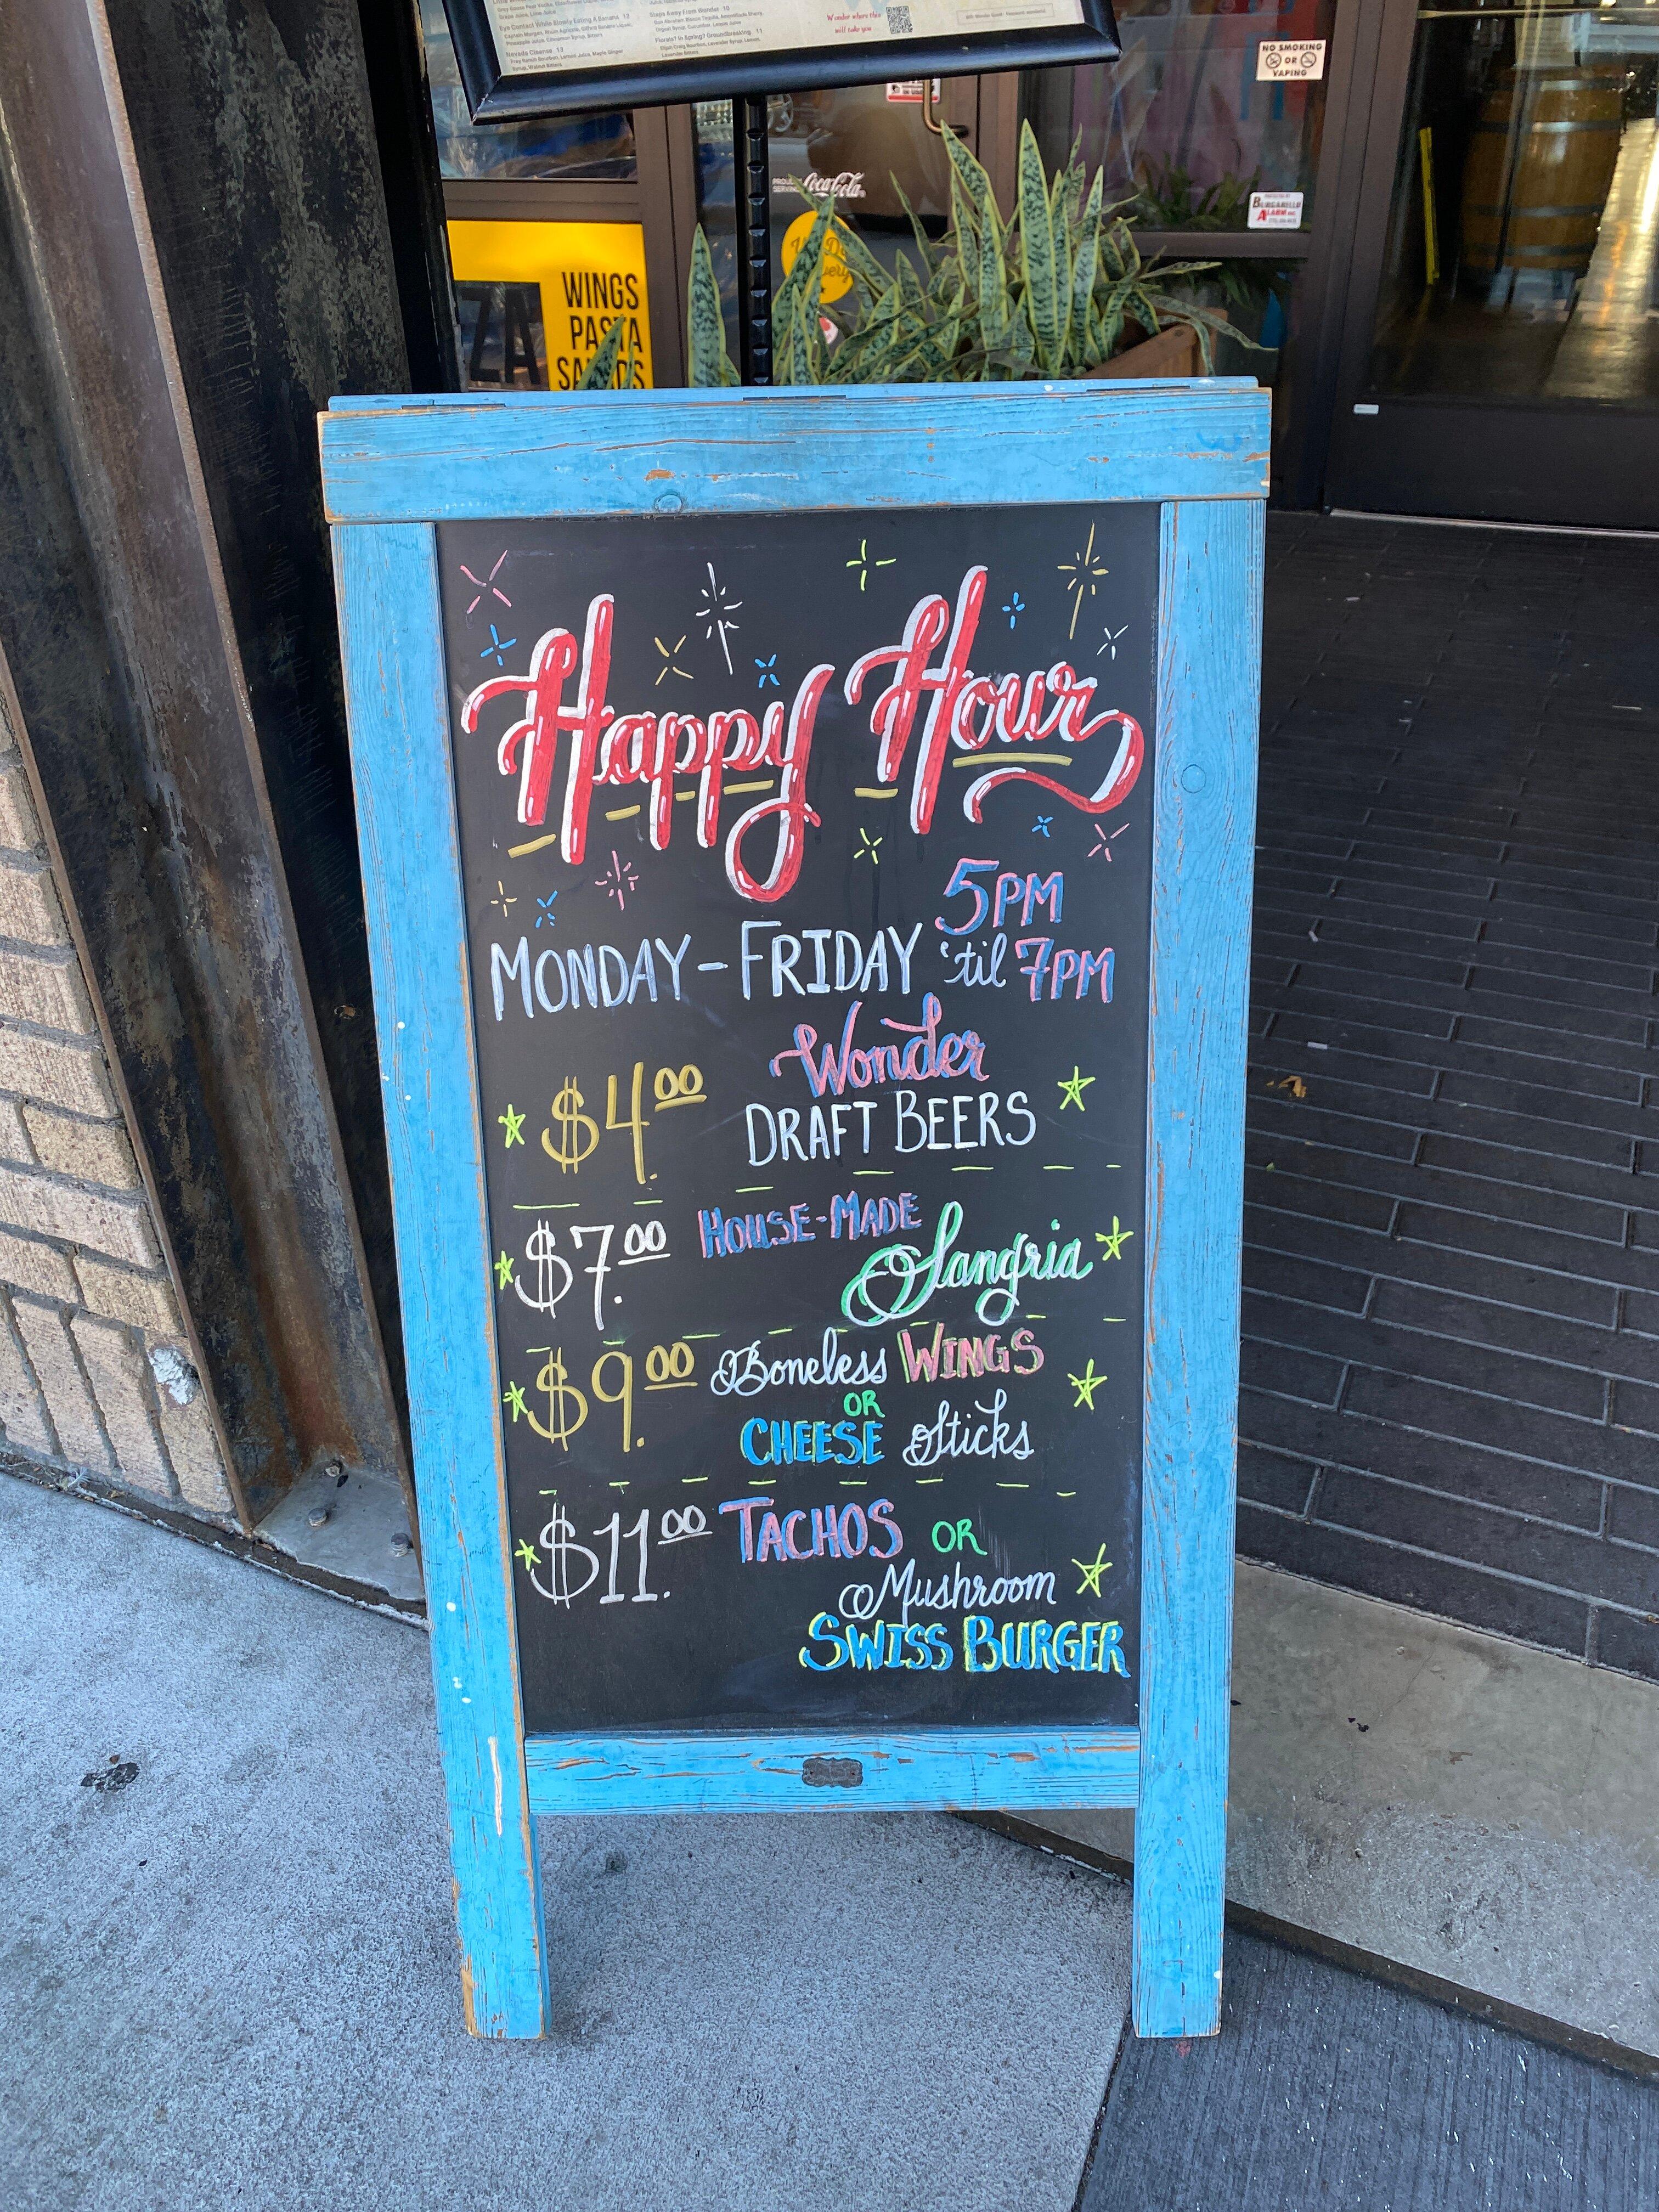 Eye Contact While Elderly Eating A Banana 12
Nevada Cleanse 13
Steps Away From Wonder 10
Florals? In Spring? Groundbreaking. 11
Wonder where this
will take you
NO SMOKING
OR
VAPING
PROUDLY
SERVING
Coca-Cola
BURGARELLO
ALARM INC.
WINGS
PASTA
Happy Hour
MONDAY - FRIDAY 5PM
'til 7PM
$4.00 Wonder
DRAFT BEERS
$7.00 HOUSE-MADE
Sangria
$9.00 Boneless WINGS
OR
CHEESE Sticks
$11.00 TACHOS OR
Mushroom
SWISS BURGER